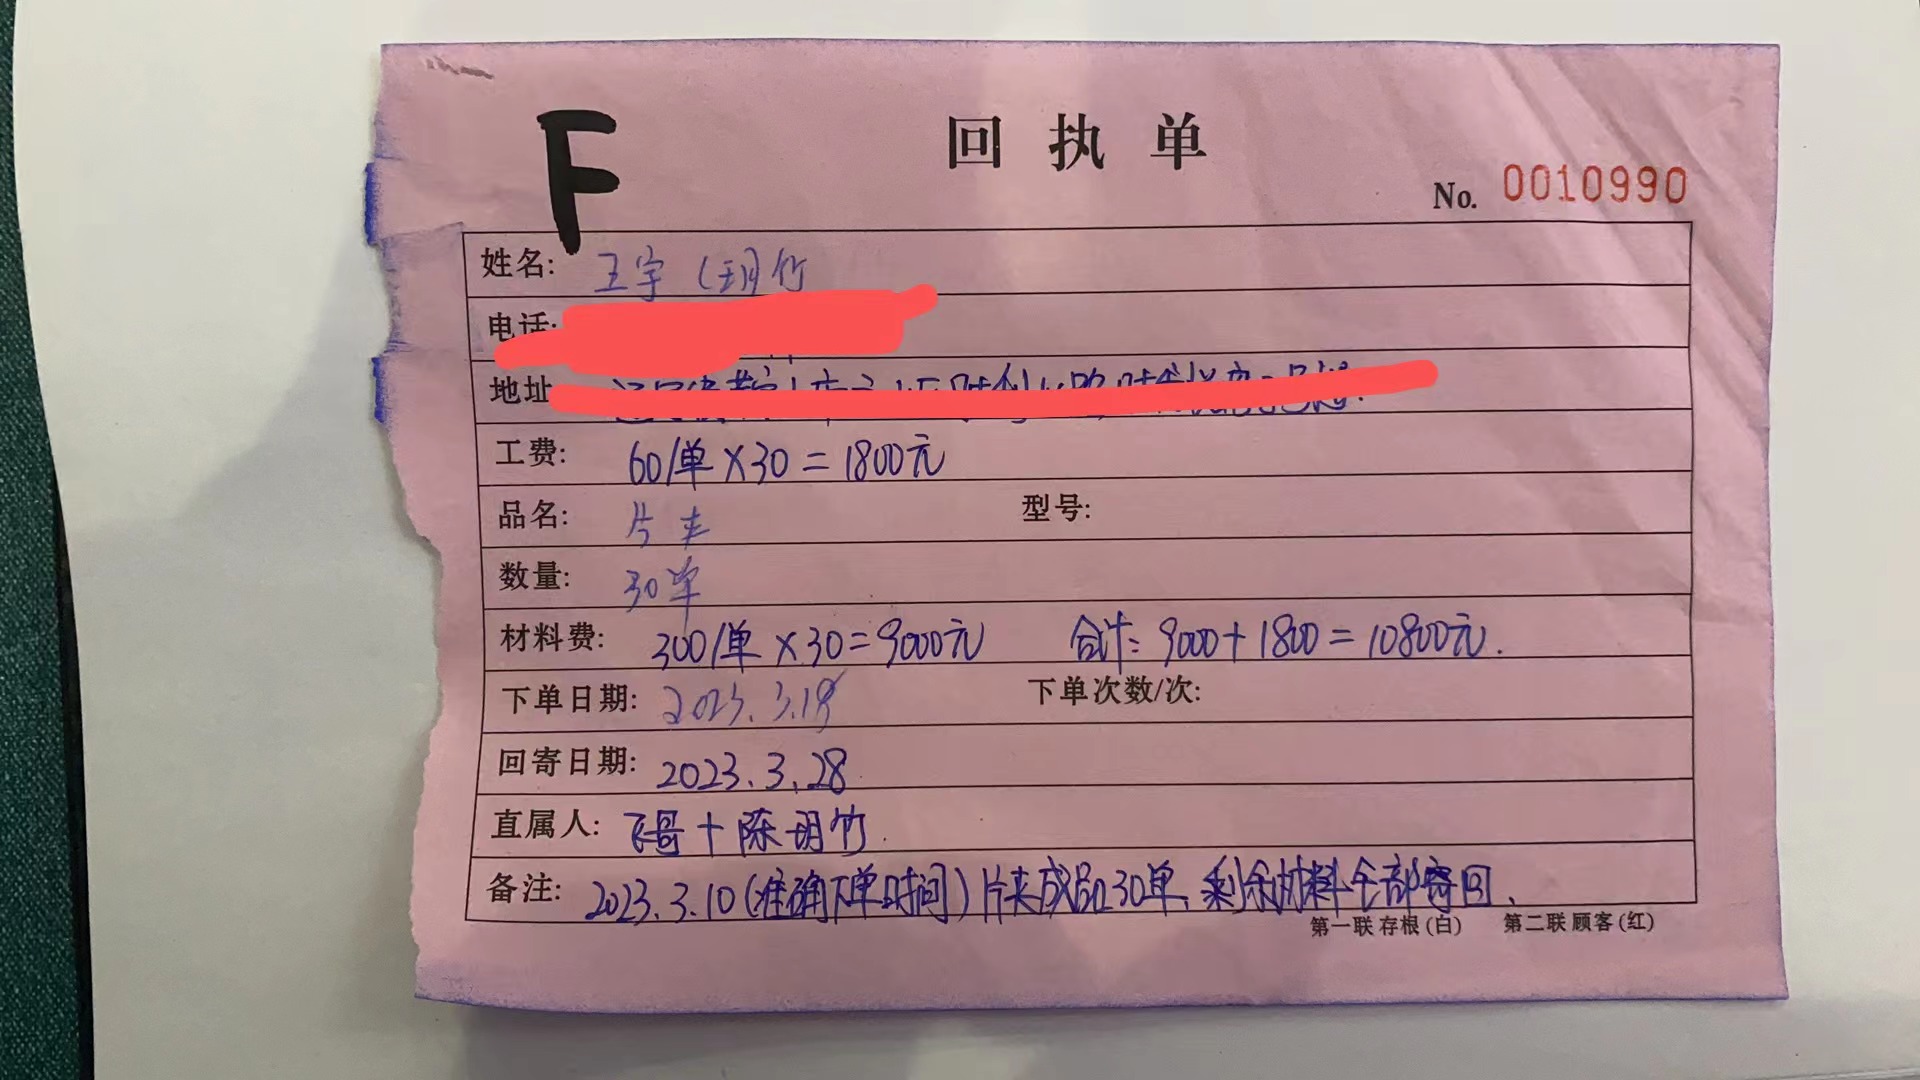 F
回执单
No. 0010990
姓名: 王宇（玥竹
电话:
地址
工费: 60/单×30=1800元
品名: 片夹 型号:
数量: 30单
材料费: 300/单×30=9000元 合计: 9000+1800=10800元.
下单日期: 2023.3.19 下单次数/次:
回寄日期: 2023.3.28
直属人: 飞哥+陈玥竹.
备注: 2023.3.10(准确下单时间)片夹成品30单、剩余材料全部寄回.
第一联 存根(白) 第二联 顾客(红)